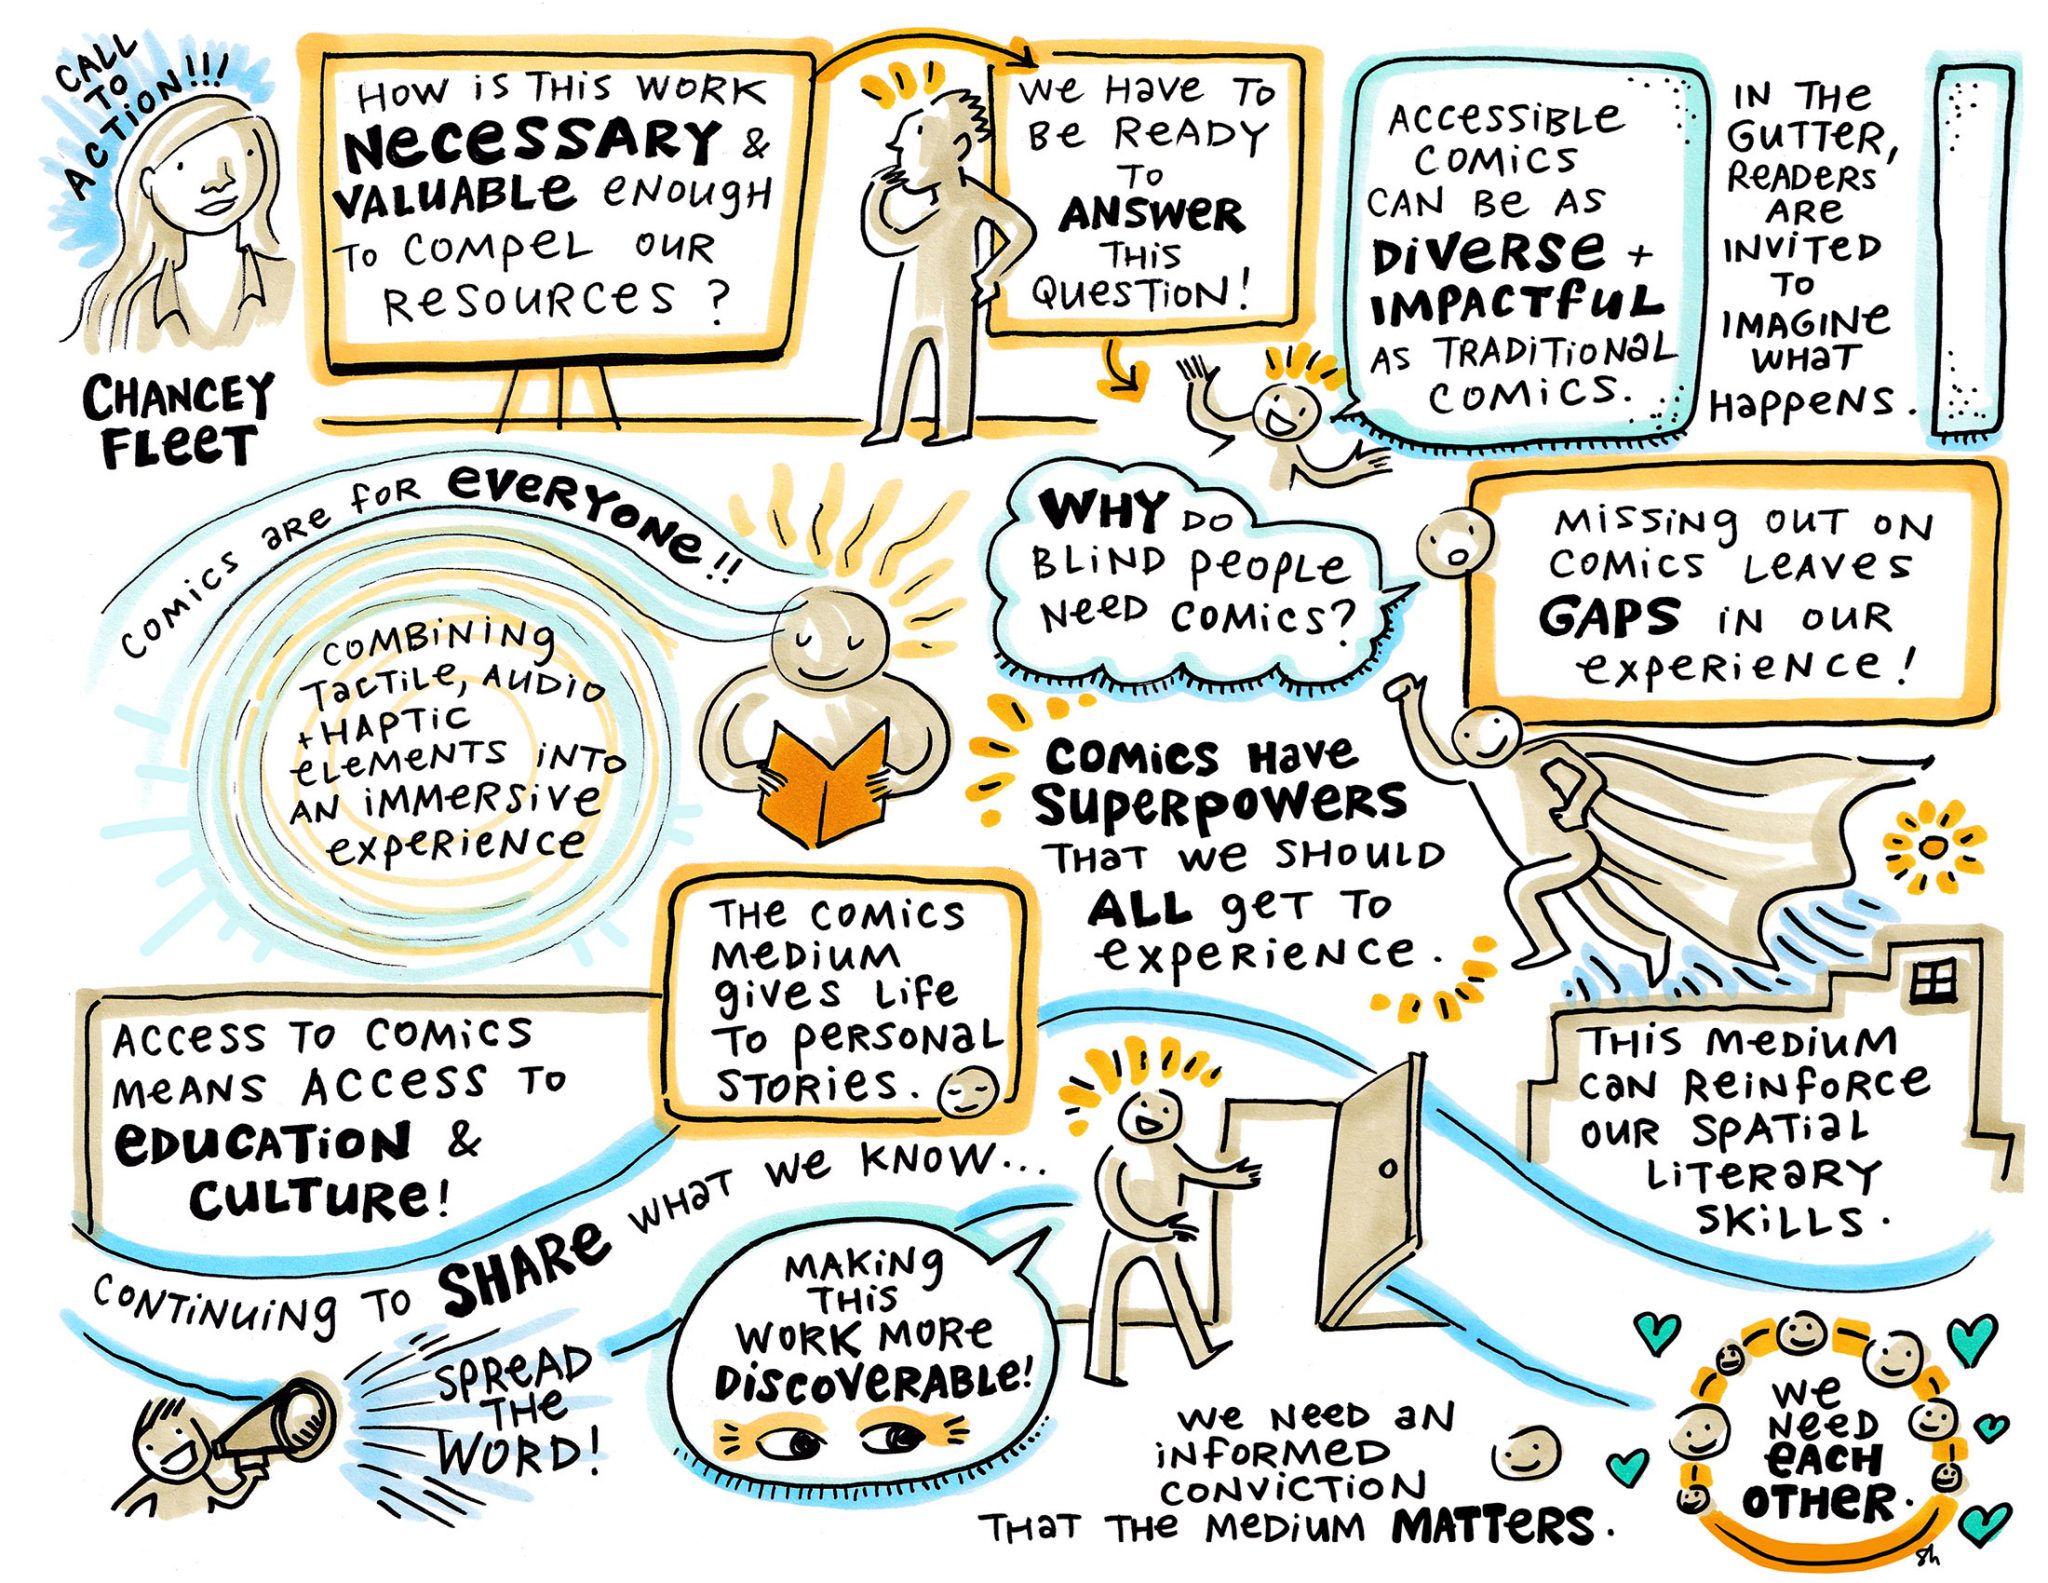 CALL
TO
ACTION!!!
CHANCEY
FLEET
HOW IS THIS WORK
NECESSARY &
VALUABLE ENOUGH
TO COMPEL OUR
RESOURCES?
WE HAVE TO
BE READY
TO
ANSWER
THIS
QUESTION!
ACCESSIBLE
COMICS
CAN BE AS
DIVERSE +
IMPACTFUL
AS TRADITIONAL
COMICS.
IN THE
GUTTER,
READERS
ARE
INVITED
TO
IMAGINE
WHAT
HAPPENS.
COMICS ARE FOR EVERYONE!!
COMBINING
TACTILE, AUDIO
+ HAPTIC
ELEMENTS INTO
AN IMMERSIVE
EXPERIENCE
WHY DO
BLIND PEOPLE
NEED COMICS?
MISSING OUT ON
COMICS LEAVES
GAPS IN OUR
EXPERIENCE!
COMICS HAVE
SUPERPOWERS
THAT WE SHOULD
ALL GET TO
EXPERIENCE.
THE COMICS
MEDIUM
GIVES LIFE
TO PERSONAL
STORIES.
ACCESS TO COMICS
MEANS ACCESS TO
EDUCATION &
CULTURE!
THIS MEDIUM
CAN REINFORCE
OUR SPATIAL
LITERARY
SKILLS.
CONTINUING TO SHARE WHAT WE KNOW...
SPREAD
THE
WORD!
MAKING
THIS
WORK MORE
DISCOVERABLE!
WE NEED AN
INFORMED
CONVICTION
THAT THE MEDIUM MATTERS.
WE
NEED
EACH
OTHER.
sh